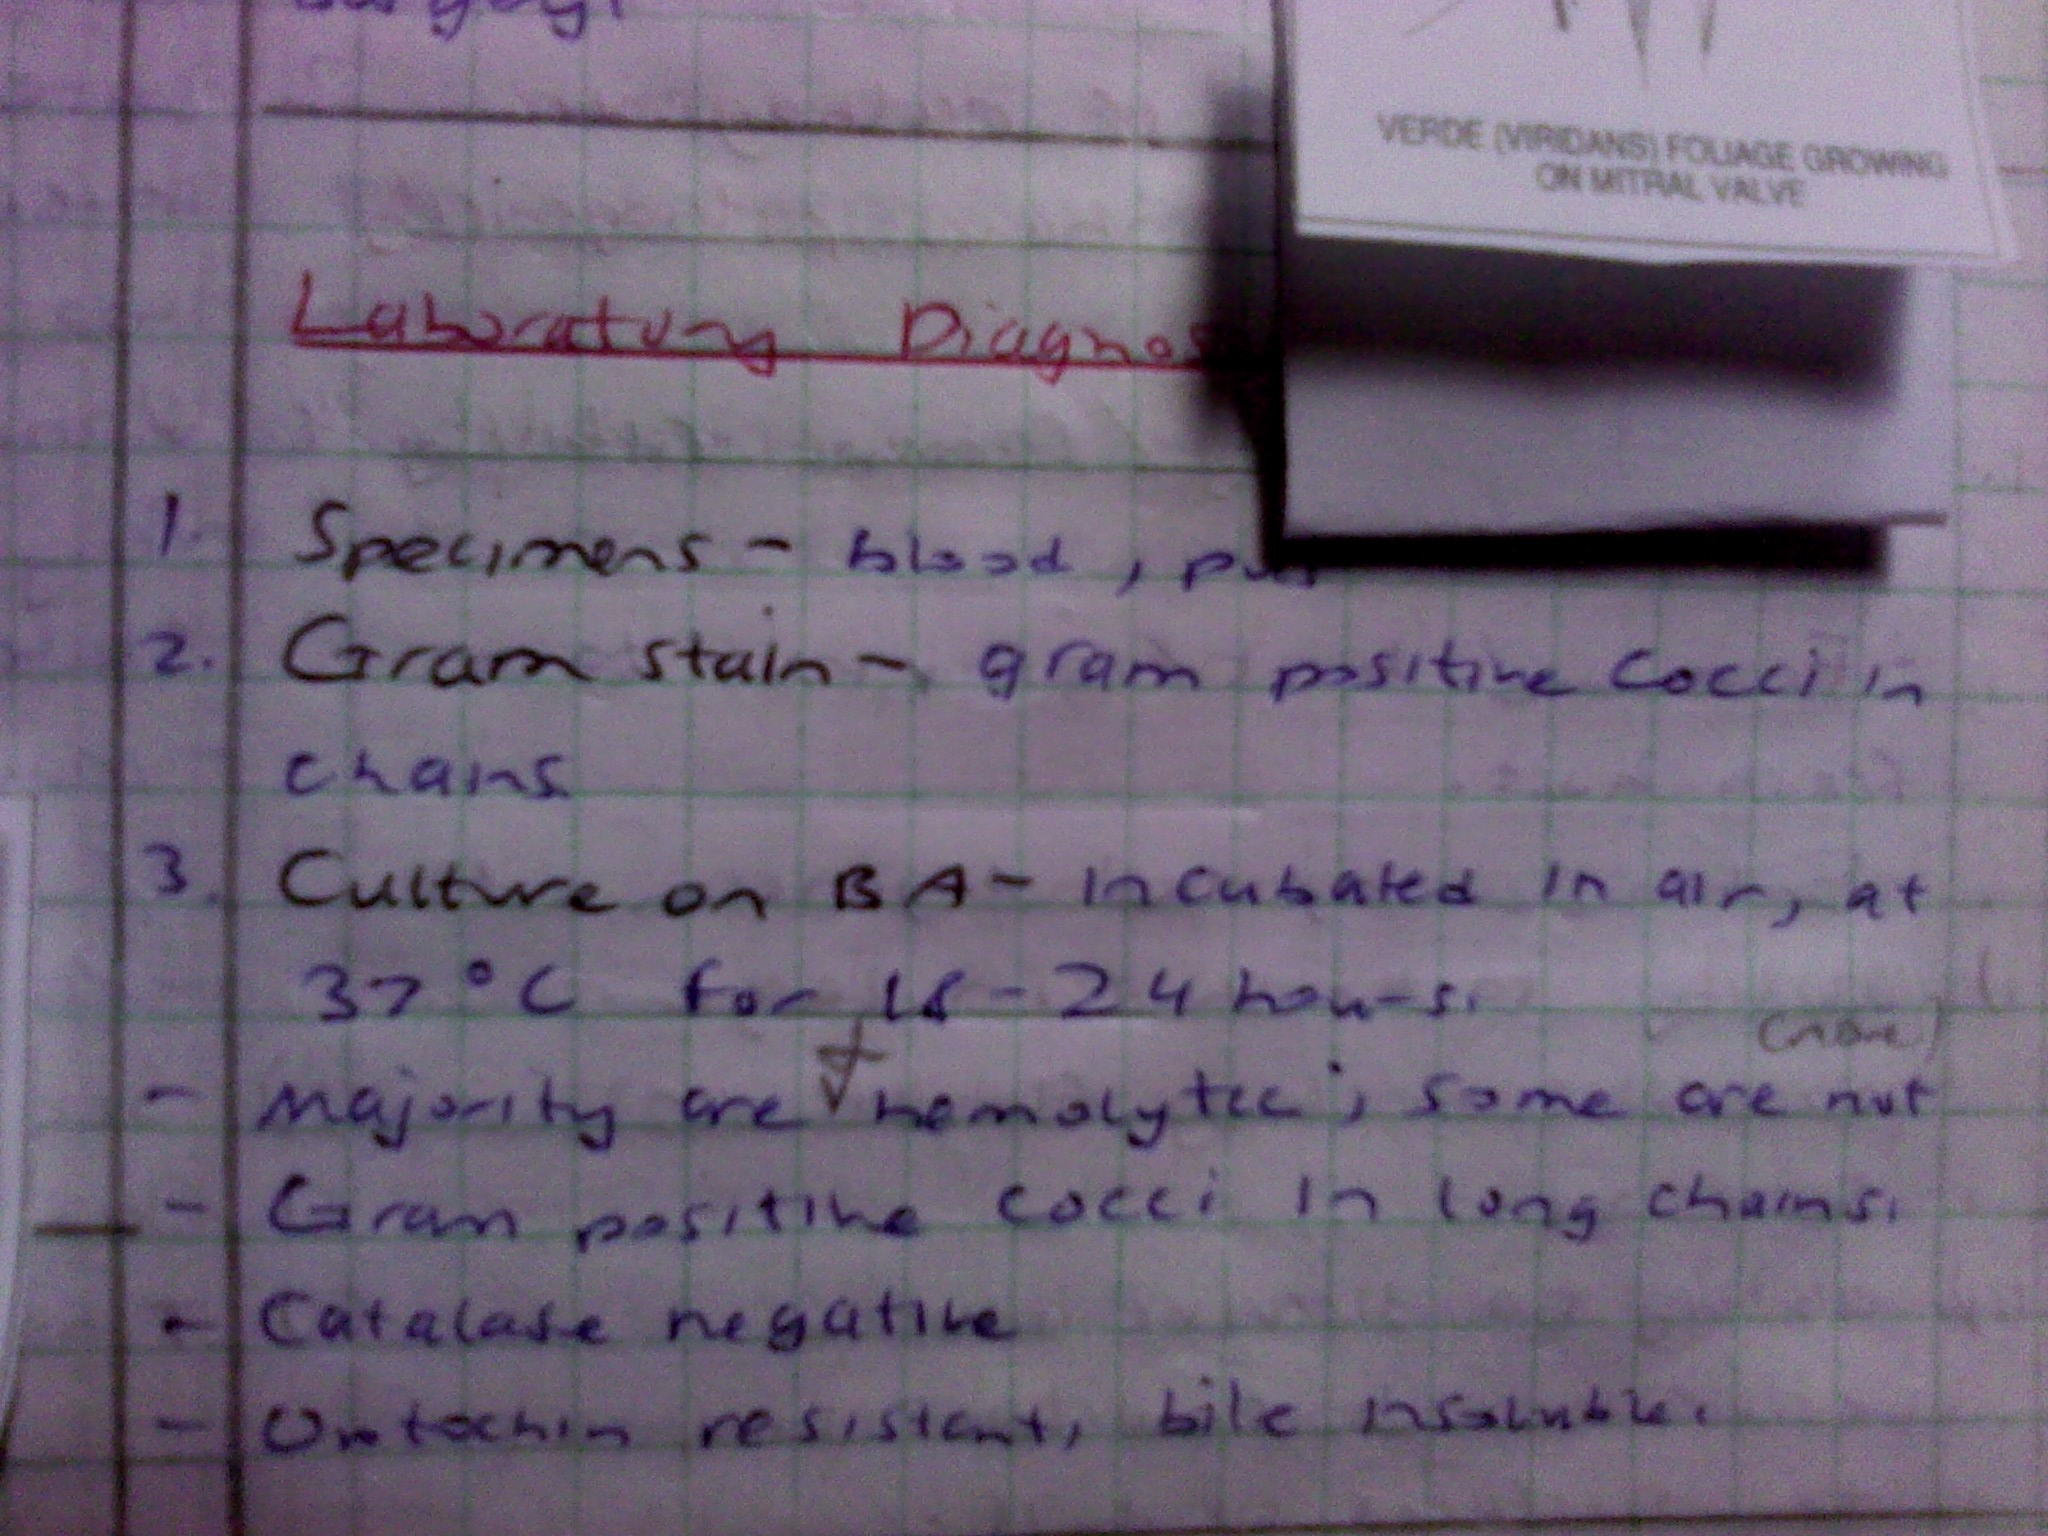 VERDE (VIRIDANS) FOLIAGE GROWING
ON MITRAL VALVE
Laboratory Diagnos
1. Specimens - blood, pus
2. Gram stain - gram positive cocci in
chains
3. Culture on BA - incubated in air, at
37°C for 18-24 hours.
(none)
- Majority are hemolytic; some are not
- Gram positive cocci in long chains.
- Catalase negative
- Optochin resistant, bile insoluble.